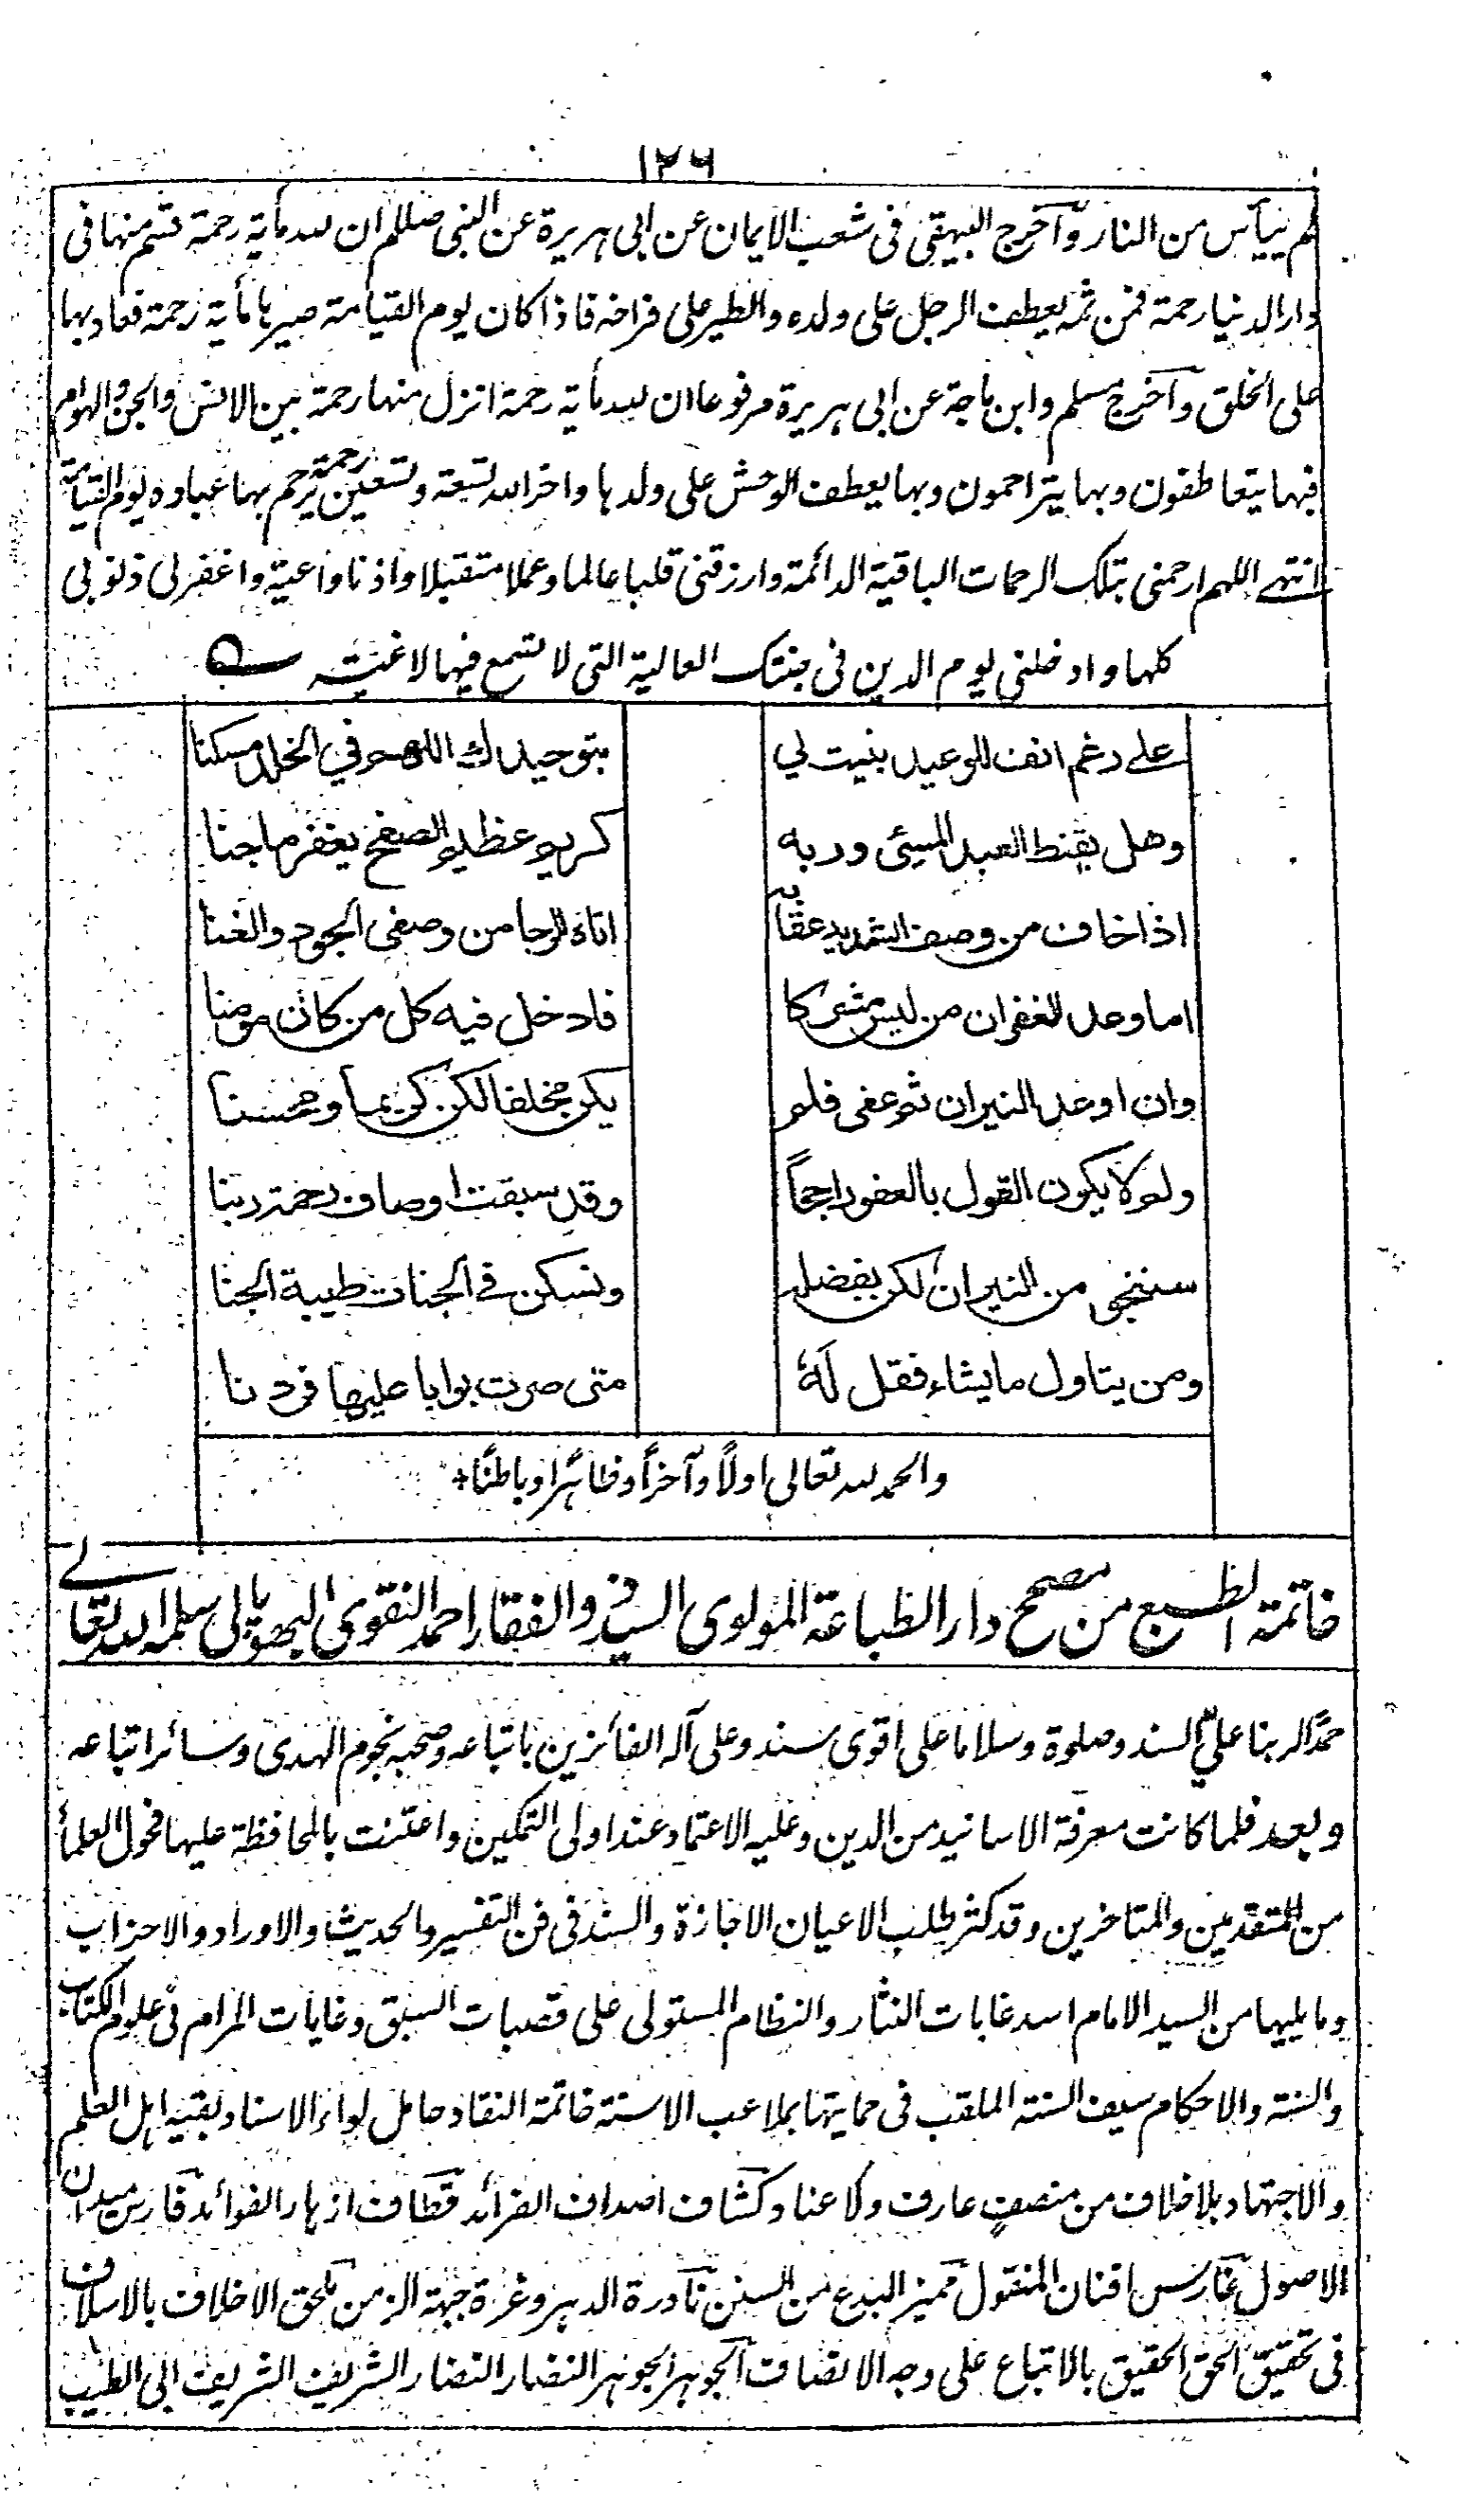 ١٢٦
لم ييأس من النار وآخرج البيهقي في شعب الايمان عن ابي هريرة عن النبي صللم ان لله مأية رحمة قسم منها في
دار الدنيا رحمة فمن ثمه يعطف الرجل على ولده والطير على فراخه فاذا كان يوم القيامة صيرها مأية رحمة فعاد بها
على الخلق وآخرج مسلم وابن ماجة عن ابي هريرة مرفوعا ان لله مأية رحمة انزل منها رحمة بين الانس والجن والهوام
فبها يتعاطفون وبها يتراحمون وبها يعطف الوحش على ولدها واخر الله تسعة وتسعين رحمة يرحم بها عباده يوم القيامة
انتهى اللهم ارحمني بتلك الرحمات الباقية الدائمة وارزقني قلبا عالما وعملا متقبلا واذنا واعية واغفر لي ذنوبي
كلها وادخلني يوم الدين في جنتك العالية التي لا تسمع فيها لاغية
على رغم انف للوعيد بنيت لي بتوحيدك اللهم في الخلد مسكنا
وهل يقنط العبد المسيئ وربه كريم عظيم الصفح يغفر ما جنا
اذا خاف من وصف الشديد عقابه اتاه الرجا من وصفي الجود والغنا
اما وعد الغفران من ليس مشركا فادخل فيه كل من كان مومنا
وان اوعد النيران ثم عفى فلم يكن مخلفا لكن كريما ومحسنا
ولم لا يكون القول بالعفو راجحاً وقد سبقت اوصاف رحمة ربنا
سننجي من النيران لكن بفضله ونسكن في الجنات طيبة الجنا
ومن يتاول ما يشاء فقل لهٗ متى صرت بوابا عليها فردنا
والحمد لله تعالى اولاً وآخراً وظاهراً وباطناً٭
خاتمة الطبع من مصحح دار الطباعة المولوي السيد ذو الفقار احمد النقوي البهوپالي سلمه الله تعالى
حمداً لربنا عليّ السند وصلوة وسلاما على اقوى سند وعلى آله الفائزين باتباعه وصحبه نجوم الهدى وسائر اتباعه
وبعد فلما كانت معرفة الاسانيد من الدين وعليه الاعتماد عند اولى التمكين واعتنت بالمحافظة عليها فحول العلمأ
من المتقدمين والمتاخرين وقد كثر طلب الاعيان الاجازة والسند في فن التفسير والحديث والاوراد والاحزاب
وما يليها من السيد الامام اسد غابات النثار والنظام المستولى على قصبات السبق وغايات المرام في علوم الكتاب
والسنة والاحكام سيف السنة الملقب في حمايتها بملاعب الاسنة خاتمة النقاد حامل لواء الاسناد بقية اهل العلم
والاجتهاد بلا خلاف من منصفٍ عارف ولا عناد كشاف اصداف الفرائد قطاف ازهار الفوائد فارس ميدان
الاصول غارس افنان المنقول مميز البدع من السنن نادرة الدهر وغرة جبهة الزمن ملحق الاخلاف بالاسلاف
في تحقيق الحق الحقيق بالاتباع على وجه الانصاف الجوهر الجوهر النضار النضار الشريف الشريف ابي الطيب